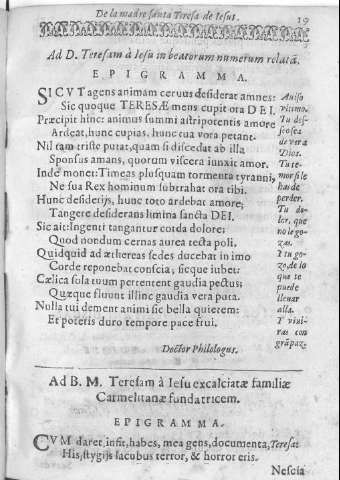 De la madre santa Teresa de Iesus.
19
Ad D. Teresam à Iesu in beatorum numerum relatã.
EPIGRAMMA.
SICVT agens animam ceruus desiderat amnes:
Sic quoque TERESÆ mens cupit ora DEI.
Præcipit hinc: animus summi astripotentis amore
Ardeat, hunc cupias, hunc tua vora petant.
Nil tam triste putat, quam si discedat ab illa
Sponsus amans, quorum viscera iunxit amor.
Inde monet: Timeas plusquam tormenta tyranni,
Ne sua Rex hominum subtrahat ora tibi.
Hunc desiderijs, hunc toto ardebat amore;
Tangere desiderans lumina sancta DEI.
Sic ait: ingenti tangantur corda dolore;
Quod nondum cernas aurea tecta poli.
Quidquid ad æthereas sedes ducebat in imo
Corde reponebat conscia, sicque iubet:
Cælica sola tuum pertentent gaudia pectus;
Quæque fluunt illinc gaudia vera puta.
Nulla tui dement animi sic bella quietem:
Et poteris duro tempore pace frui.
Auiso
vltimo.
Tu des-
seo sea
de ver a
Dios.
Tu te-
mor si le
has de
perder.
Tu do-
lor, que
no le go-
zas.
Y tu go-
zo, de lo
que te
puede
lleuar
alla.
Y viui-
ras con
grã paz.
Doctor Philologus.
Ad B. M. Teresam à Iesu excalciatæ familiæ
Carmelitanæ fundatricem.
EPIGRAMMA.
CVM daret, infit, habes, mea gens, documenta, Teresa:
His, stygijs Iacobus terror, & horror eris.
Nescia